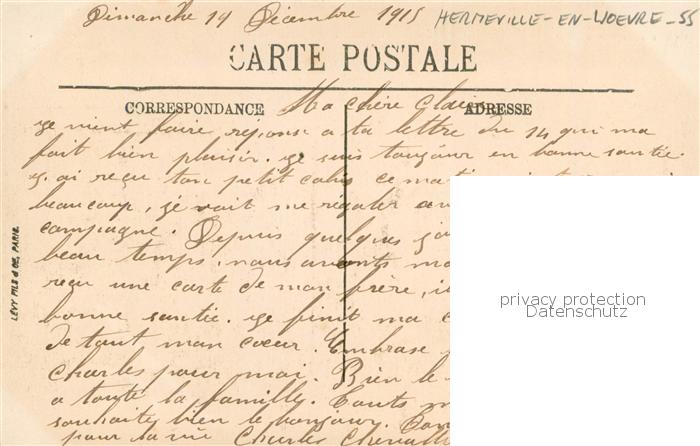 Dimanche 19 Décembre 1915 HERMEVILLE-EN-WOEVRE-55
CARTE POSTALE
CORRESPONDANCE ADRESSE
Ma chère
ge vient faire reponse a ta lettre du 14 qui ma
fait bien plaisir. ge suis toujour en bonne santie.
g. ai reçu ton petit colis ce
beaucoup, gé vait me régaler
campagne. Depuis quelques
beau temps. nous avonts
reçu une carte de mon frère,
bonne santie. ge finit ma
de tout mon coeur. Embrase
Charles pour moi. Bien le
a toute la familly.
souhaites bien le bonjour.
pour la vie Charles
LEVY FILS & CIE, PARIS
privacy protection
Datenschutz